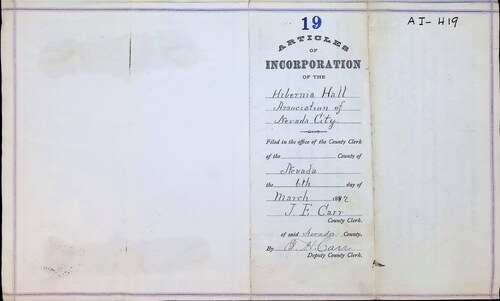 19
AI-H19
ARTICLES
OF
INCORPORATION
OF THE
Hibernia Hall
Association of
Nevada City
Filed in the office of the County Clerk
of the County of
Nevada
the 6th day of
March 1892
J. F. Carr
County Clerk.
of said Nevada County.
By Carr
Deputy County Clerk.